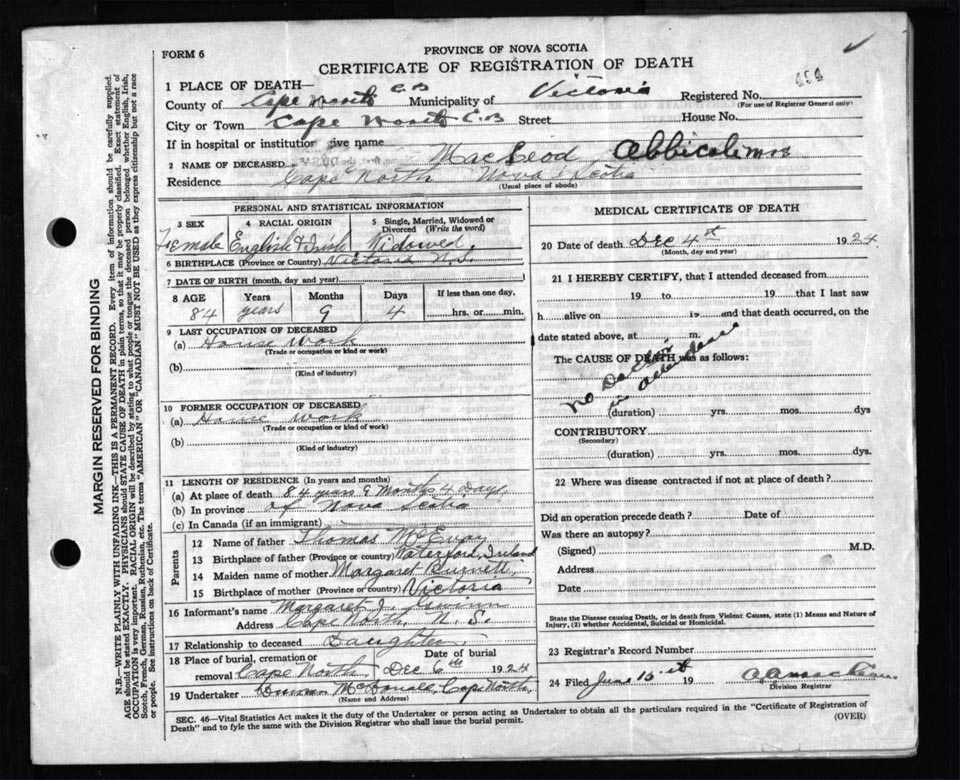 FORM 6
PROVINCE OF NOVA SCOTIA
CERTIFICATE OF REGISTRATION OF DEATH
454
1 PLACE OF DEATH—
County of Cape North C.B Municipality of Victoria Registered No.
(For use of Registrar General only)
City or Town Cape North C.B Street House No.
If in hospital or institution give name
2 NAME OF DECEASED MacLeod,
Residence Cape North Nova Scotia
(Usual place of abode)
PERSONAL AND STATISTICAL INFORMATION
3 SEX 4 RACIAL ORIGIN 5 Single, Married, Widowed or Divorced (Write the word)
Female English & Irish Widowed
6 BIRTHPLACE (Province or Country) Victoria N.S.
7 DATE OF BIRTH (month, day and year)
8 AGE Years Months Days If less than one day,
84 years 9 4 hrs. or min.
9 LAST OCCUPATION OF DECEASED
(a) House Work
(Trade or occupation or kind or work)
(b)
(Kind of industry)
10 FORMER OCCUPATION OF DECEASED
(a) House Work
(Trade or occupation or kind or work)
(b)
(Kind of industry)
11 LENGTH OF RESIDENCE (In years and months)
(a) At place of death 84 years 9 Months 4 Days
(b) In province of Nova Scotia
(c) In Canada (if an immigrant)
Parents
12 Name of father Thomas McEvoy
13 Birthplace of father (Province or country) Waterford, Ireland
14 Maiden name of mother Margaret Burnett
15 Birthplace of mother (Province or country) Victoria
16 Informant's name Margaret J.
Address Cape North, N. S.
17 Relationship to deceased Daughter
18 Place of burial, cremation or removal Cape North, Date of burial Dec 6th 1924
19 Undertaker Cape North,
(Name and Address)
MEDICAL CERTIFICATE OF DEATH
20 Date of death Dec 4th 1924.
(Month, day and year)
21 I HEREBY CERTIFY, that I attended deceased from
19 to 19 that I last saw
h alive on 19 and that death occurred, on the
date stated above, at m.
The CAUSE OF DEATH was as follows:
No Doctor in attendance
(duration) yrs. mos. dys
CONTRIBUTORY
(Secondary)
(duration) yrs. mos. dys.
22 Where was disease contracted if not at place of death?
Did an operation precede death? Date of
Was there an autopsy?
(Signed) M.D.
Address
Date
State the Disease causing Death, or in death from Violent Causes, state (1) Means and Nature of Injury, (2) whether Accidental, Suicidal or Homicidal.
23 Registrar's Record Number
24 Filed June 15 19
Division Registrar
SEC. 46—Vital Statistics Act makes it the duty of the Undertaker or person acting as Undertaker to obtain all the particulars required in the "Certificate of Registration of
Death" and to fyle the same with the Division Registrar who shall issue the burial permit. (OVER)
MARGIN RESERVED FOR BINDING
N.B.—WRITE PLAINLY WITH UNFADING INK—THIS IS A PERMANENT RECORD. Every item of information should be carefully supplied.
AGE should be stated EXACTLY. PHYSICIANS should STATE CAUSE OF DEATH in plain terms, so that it may be properly classified. Exact statement of
OCCUPATION is very important. RACIAL ORIGIN will be described by stating to what people or tongue the deceased person belonged whether English, Irish,
Scotch, French, German, Russian, Ruthenian, etc. The terms "AMERICAN" OR "CANADIAN" MUST NOT BE USED as they express citizenship but not a race
or people. See instructions on back of Certificate.